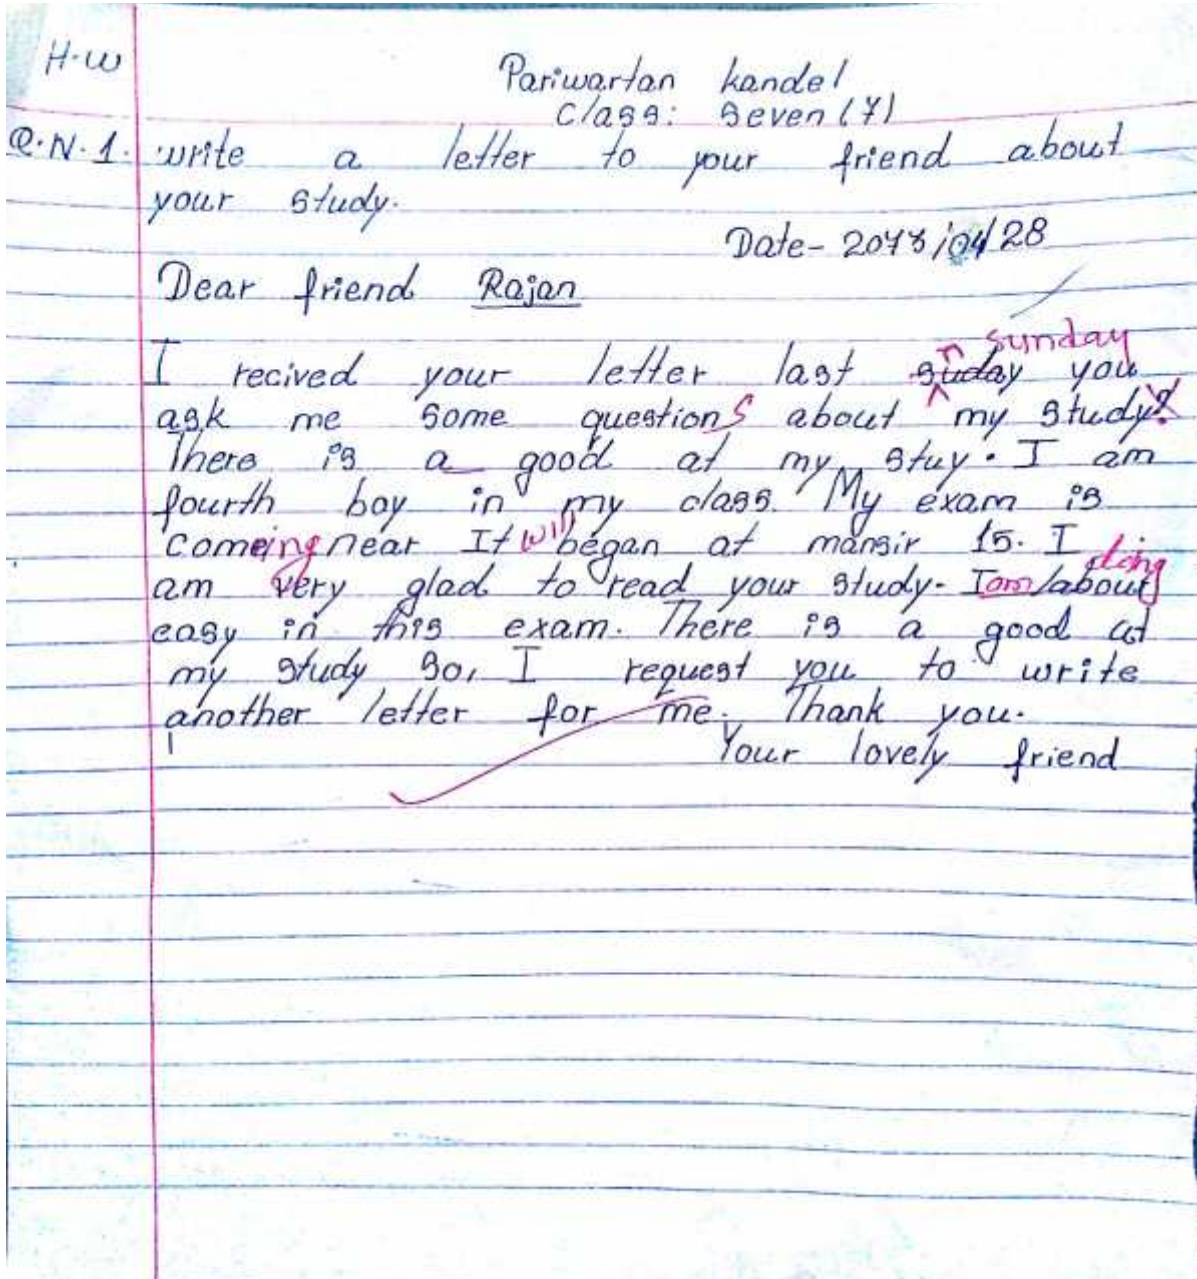 H.W
Pariwartan kandel
Class: Seven (7)
Q.N.1. write a letter to your friend about
your study.
Date- 2078/04/28
Dear friend Rajan
sunday
I recived your letter last suday you
ask me some questions about my study?
There is a good at my stuy. I am
fourth boy in my class. My exam is
comeing near It will began at mansir 15. I
doing
am very glad to read your study. I am about
easy in this exam. There is a good at
my study so, I request you to write
another letter for me. Thank you.
Your lovely friend